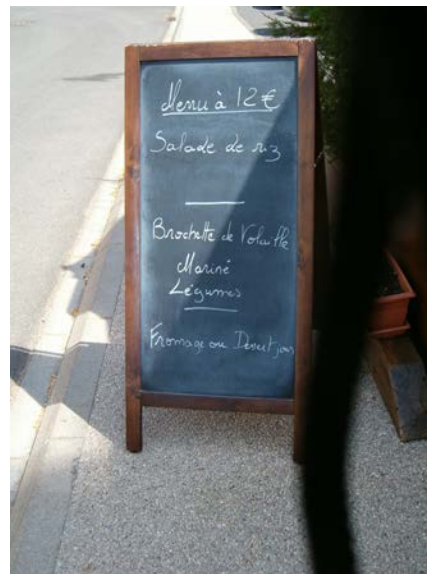 Menu à 12 €
Salade de riz
Brochette de Volaille
Mariné
Légumes
Fromage ou Dessert jour